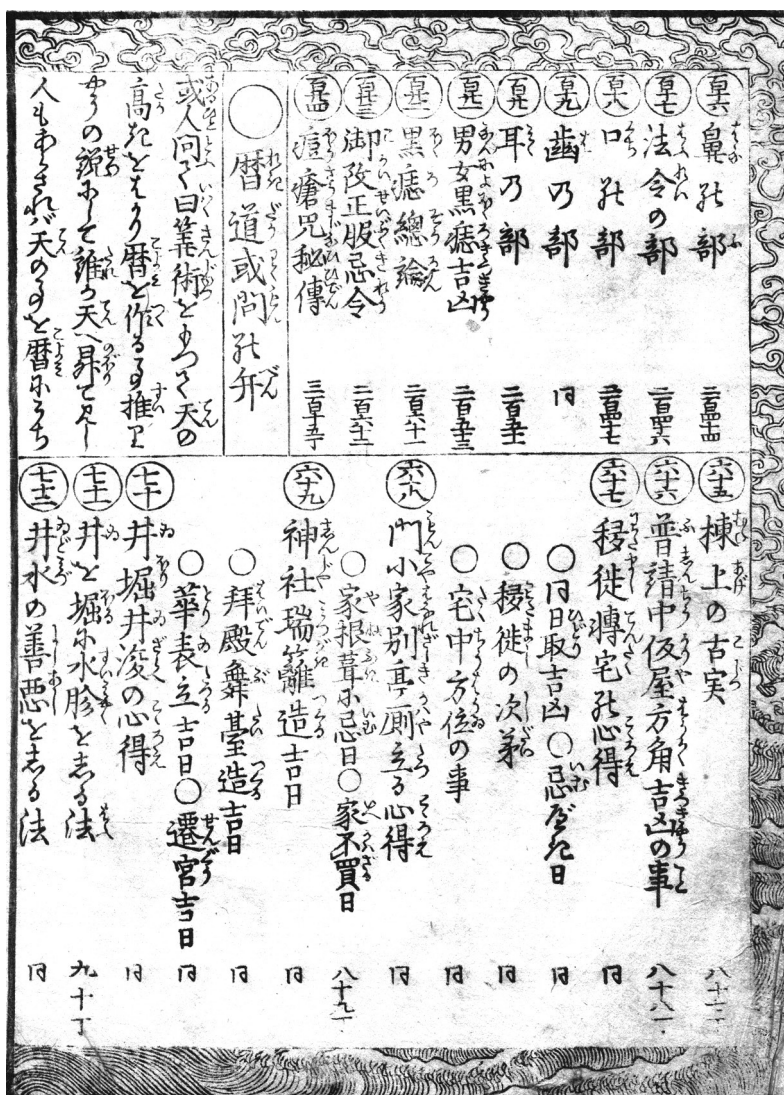 百十六 鼻の部 二百四十四
百十七 法令の部 二百四十六
百十八 口の部 二百四十七
百十九 歯乃部 同
百二十 耳乃部 二百五十
百廿一 男女黒痣吉凶 二百五十三
百廿二 黒痣總論 二百六十一
百廿三 御改正服忌令 二百六十二
百廿四 疱瘡咒秘傳 三百十五丁
○ 暦道或問の弁
或人問て曰算術をもつて天の
高きをはかり暦を作る事推量
やうの説にして誰か天へ昇て見し
人もあらざれバ天の事を暦にうち
六十五 棟上の古実
六十六 普請中仮屋方角吉凶の事 八十八丁
六十七 移徙轉宅の心得 同
○同日取吉凶○忌べき日 同
○移徙の次第 同
○宅中方位の事 同
六十八 門小家別亭厠立る心得 同
○家根葺に忌日○家不買日 八十九丁
六十九 神社瑞籬造吉日 同
○拜殿舞臺造吉日 同
○華表立吉日○遷宮吉日 同
七十 井堀井浚の心得 同
七十一 井を堀に水脉を志る法 九十丁
七十二 井水の善悪を志る法 同